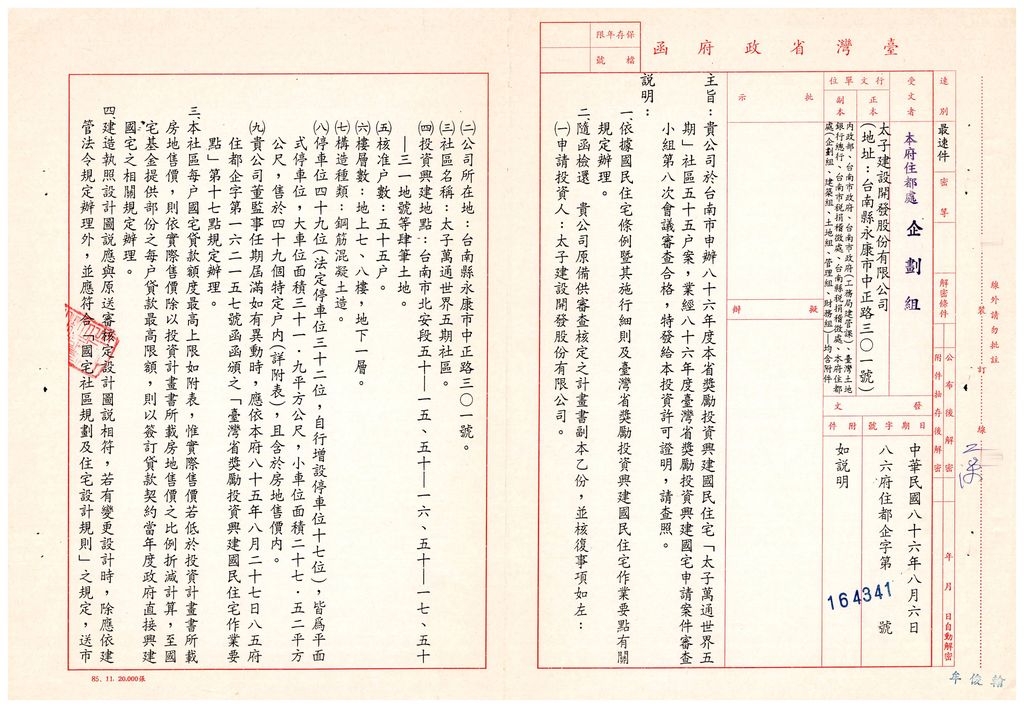 保存年限
檔號
臺灣省政府函
速別
最速件
密等
解密條件
公布後解密
附件抽存後解密
年月日自動解密
受文者
本府住都處 企劃組
行文單位
正本
太子建設開發股份有限公司
(地址:台南縣永康市中正路三〇一號)
副本
內政部、台南市政府、台南市政府(工務局建管課)、臺灣土地
銀行總行、台南市稅捐稽徵處、台南縣稅捐稽徵處、本府住都
處(企劃組、建築組、土地組、管理組、財務組)—均含附件
發文
日期
中華民國八十六年八月六日
字號
八六府住都企字第 164341 號
附件
如說明
批示
擬辦
裝訂線
線外請勿批註
主旨:貴公司於台南市申辦八十六年度本省獎勵投資興建國民住宅「太子萬通世界五
期」社區五十五戶案,業經八十六年度臺灣省獎勵投資興建國宅申請案件審查
小組第八次會議審查合格,特發給本投資許可證明,請查照。
說明:
一、依據國民住宅條例暨其施行細則及臺灣省獎勵投資興建國民住宅作業要點有關
規定辦理。
二、隨函檢還 貴公司原備供審查核定之計畫書副本乙份,並核復事項如左:
(一)申請投資人:太子建設開發股份有限公司。
(二)公司所在地:台南縣永康市中正路三〇一號。
(三)社區名稱:太子萬通世界五期社區。
(四)投資興建地點:台南市北安段五十—一五、五十—一六、五十—一七、五十
—三一地號等肆筆土地。
(五)核准戶數:五十五戶。
(六)樓層數:地上七、八樓,地下一層。
(七)構造種類:鋼筋混凝土造。
(八)停車位四十九位(法定停車位三十二位,自行增設停車位十七位),皆為平面
式停車位,大車位面積三十一.九平方公尺,小車位面積二十七.五二平方
公尺,售於四十九個特定戶內(詳附表),且含於房地售價內。
(九)貴公司董監事任期屆滿如有異動時,應依本府八十五年八月二十七日八五府
住都企字第一六二一五七號函函頒之「臺灣省獎勵投資興建國民住宅作業要
點」第十七點規定辦理。
三、本社區每戶國宅貸款額度最高上限如附表,惟實際售價若低於投資計畫書所載
房地售價,則依實際售價除以投資計畫書所載房地售價之比例折減計算,至國
宅基金提供部份之每戶貸款最高限額,則以簽訂貸款契約當年度政府直接興建
國宅之相關規定辦理。
四、建造執照設計圖說應與原送審核定設計圖說相符,若有變更設計時,除應依建
管法令規定辦理外,並應符合「國宅社區規劃及住宅設計規則」之規定,送市
85.11.20.000張